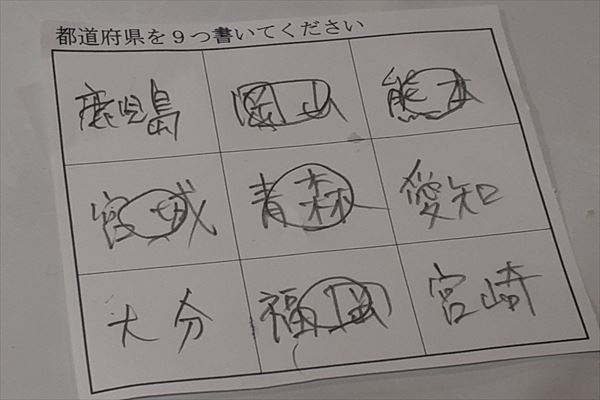 都道府県を9つ書いてください
鹿児島 岡山 熊本
宮城 青森 愛知
大分 福岡 宮崎